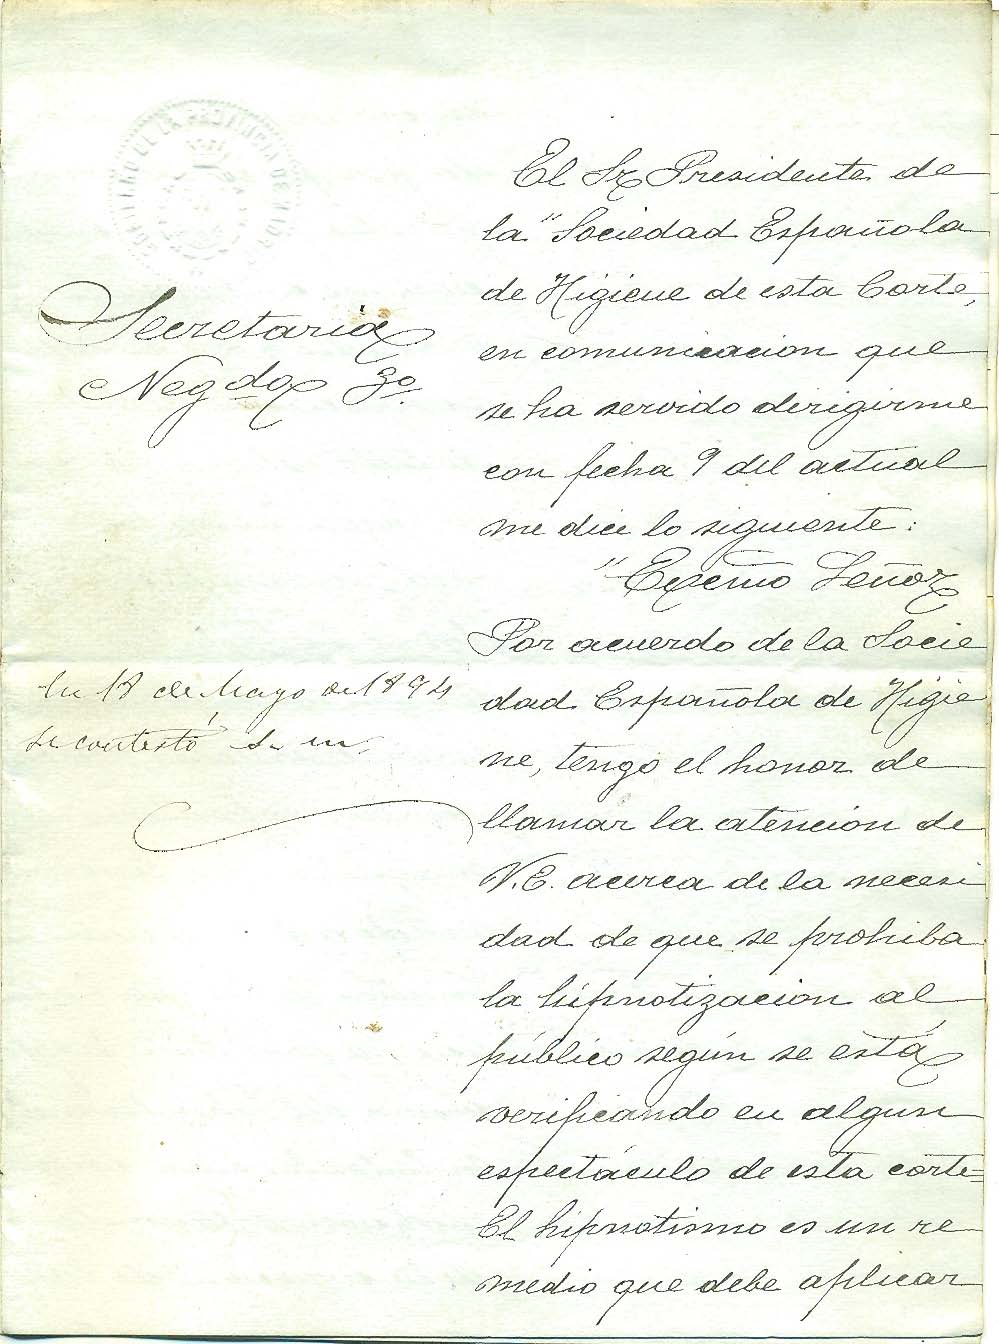 GOBIERNO DE LA PROVINCIA DE MADRID
Secretaria
Negdo 3o.
En 18 de Mayo de 1894
se contestó
El Sr Presidente de
la "Sociedad Española
de Higiene de esta Corte,
en comunicacion que
se ha servido dirigirme
con fecha 9 del actual
me dice lo siguiente:
"Excmo Señor
Por acuerdo de la Socie
dad Española de Higie
ne, tengo el honor de
llamar la atención de
V.E. acerca de la necesi
dad de que se prohiba
la hipnotización al
público según se está
verificando en algun
espectáculo de esta corte=
El hipnotismo es un re
medio que debe aplicar